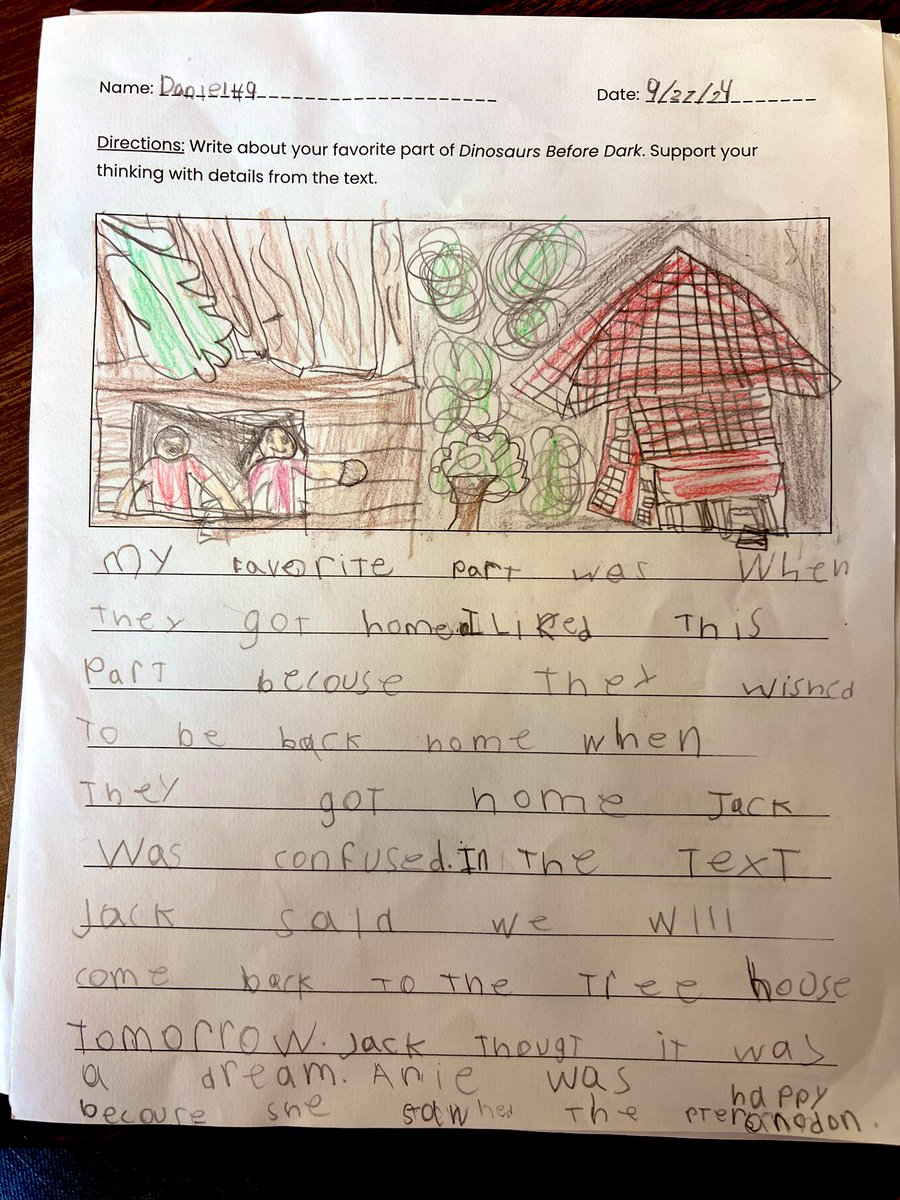 Name: Daniel#9
Date: 9/27/24
Directions: Write about your favorite part of Dinosaurs Before Dark. Support your
thinking with details from the text.
My favorite part was When
They got home. I Liked This
Part becouse They wished
To be back home when
They got home Jack
Was confused. In The Text
Jack said we will
come back To The Tree hoose
Tomorrow. Jack Thougt it was
a dream. Anie was happy
becouse she The pteranodon.